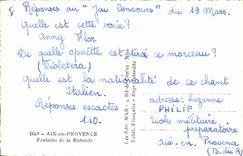 Réponses au "Jeu Concours" du 19 Mars.
Quelle est cette voix?
Anny Flor
De quelle opérette est tiré ce morceau?
(Violetera)
Quelle est la nationalité de ce chant
Italien.
Réponses exactes
110.
adresse: Suzanne
PHILIP
Ecole militaire
préparatoire
Aix-en-Provence
(B. du R)
1167 - AIX-en-PROVENCE
Fontaine de la Rotonde